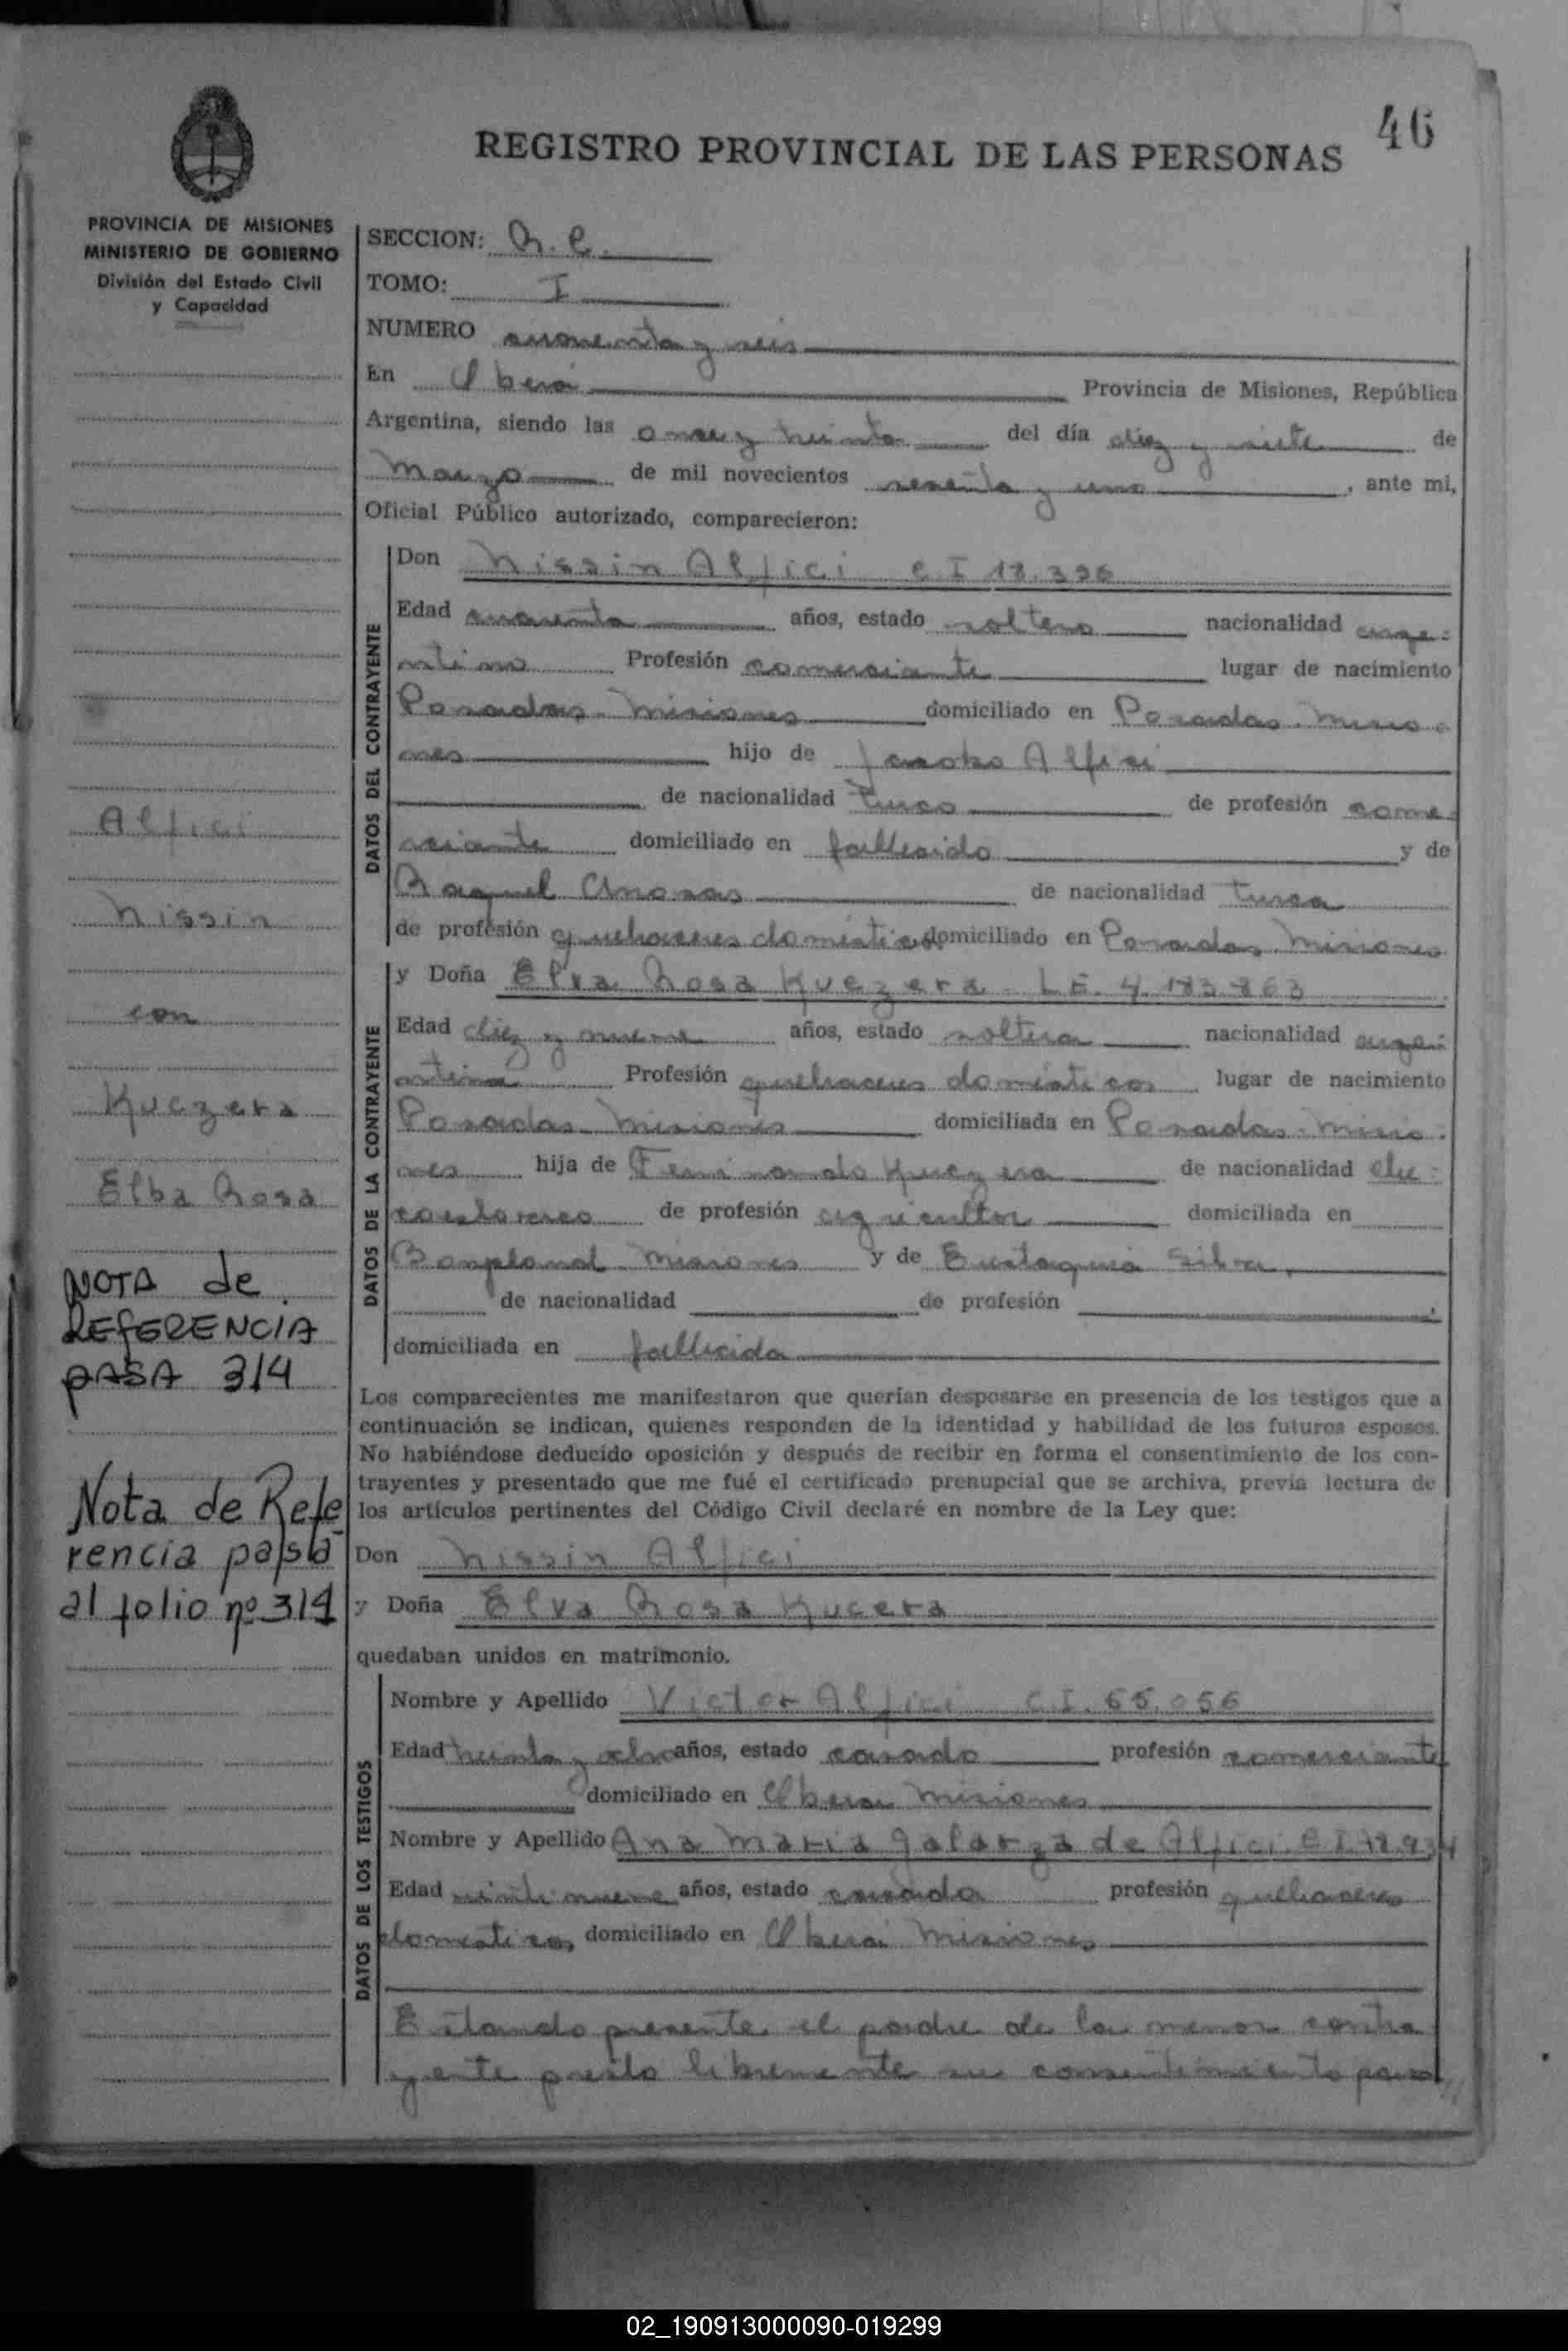 46
REGISTRO PROVINCIAL DE LAS PERSONAS
PROVINCIA DE MISIONES
MINISTERIO DE GOBIERNO
División del Estado Civil
y Capacidad
SECCION: R. C.
TOMO: I
NUMERO cuarenta y seis
En Oberá Provincia de Misiones, República
Argentina, siendo las once y treinta del día diez y siete de
Marzo de mil novecientos sesenta y uno, ante mi,
Oficial Público autorizado, comparecieron:
DATOS DEL CONTRAYENTE
Don Nissin Alfici C.I 18.396
Edad cuarenta años, estado soltero nacionalidad arge-
ntino Profesión comerciante lugar de nacimiento
Posadas. Misiones domiciliado en Posadas. Misio-
nes hijo de Jacobo Alfici
de nacionalidad Turco de profesión come-
rciante domiciliado en fallecido y de
Raquel de nacionalidad turca
de profesión quehaceres domésticos domiciliado en Posadas. Misiones
DATOS DE LA CONTRAYENTE
y Doña Elva Rosa Kuczera L.E. 4.183.863
Edad diez y nueve años, estado soltera nacionalidad argen-
tina Profesión quehaceres domésticos lugar de nacimiento
Posadas Misiones domiciliada en Posadas. Misio-
nes hija de Fernando Kuczera de nacionalidad che-
coeslovaco de profesión agricultor domiciliada en
Bonpland Misiones y de Eustaquia Silva,
de nacionalidad de profesión
domiciliada en fallecida
Los comparecientes me manifestaron que querían desposarse en presencia de los testigos que a
continuación se indican, quienes responden de la identidad y habilidad de los futuros esposos.
No habiéndose deducido oposición y después de recibir en forma el consentimiento de los con-
trayentes y presentado que me fué el certificado prenupcial que se archiva, previa lectura de
los artículos pertinentes del Código Civil declaré en nombre de la Ley que:
Don Nissin Alfici
y Doña Elva Rosa Kucera
quedaban unidos en matrimonio.
DATOS DE LOS TESTIGOS
Nombre y Apellido Victor Alfici C.I. 65.056
Edad treinta y ocho años, estado casado profesión comerciante
domiciliado en Oberá Misiones
Nombre y Apellido Ana Maria Galarza de Alfici. C.I. 78.934
Edad veintinueve años, estado casada profesión quehaceres
domésticos domiciliado en Oberá Misiones
Estando presente el padre de la menor contra
yente presto libremente su consentimiento para //
Alfici
Nissin
con
Kuczera
Elba Rosa
NOTA de
REFERENCIA
PASA 314
Nota de Refe
rencia pasa
al folio nº 314
02_190913000090-019299